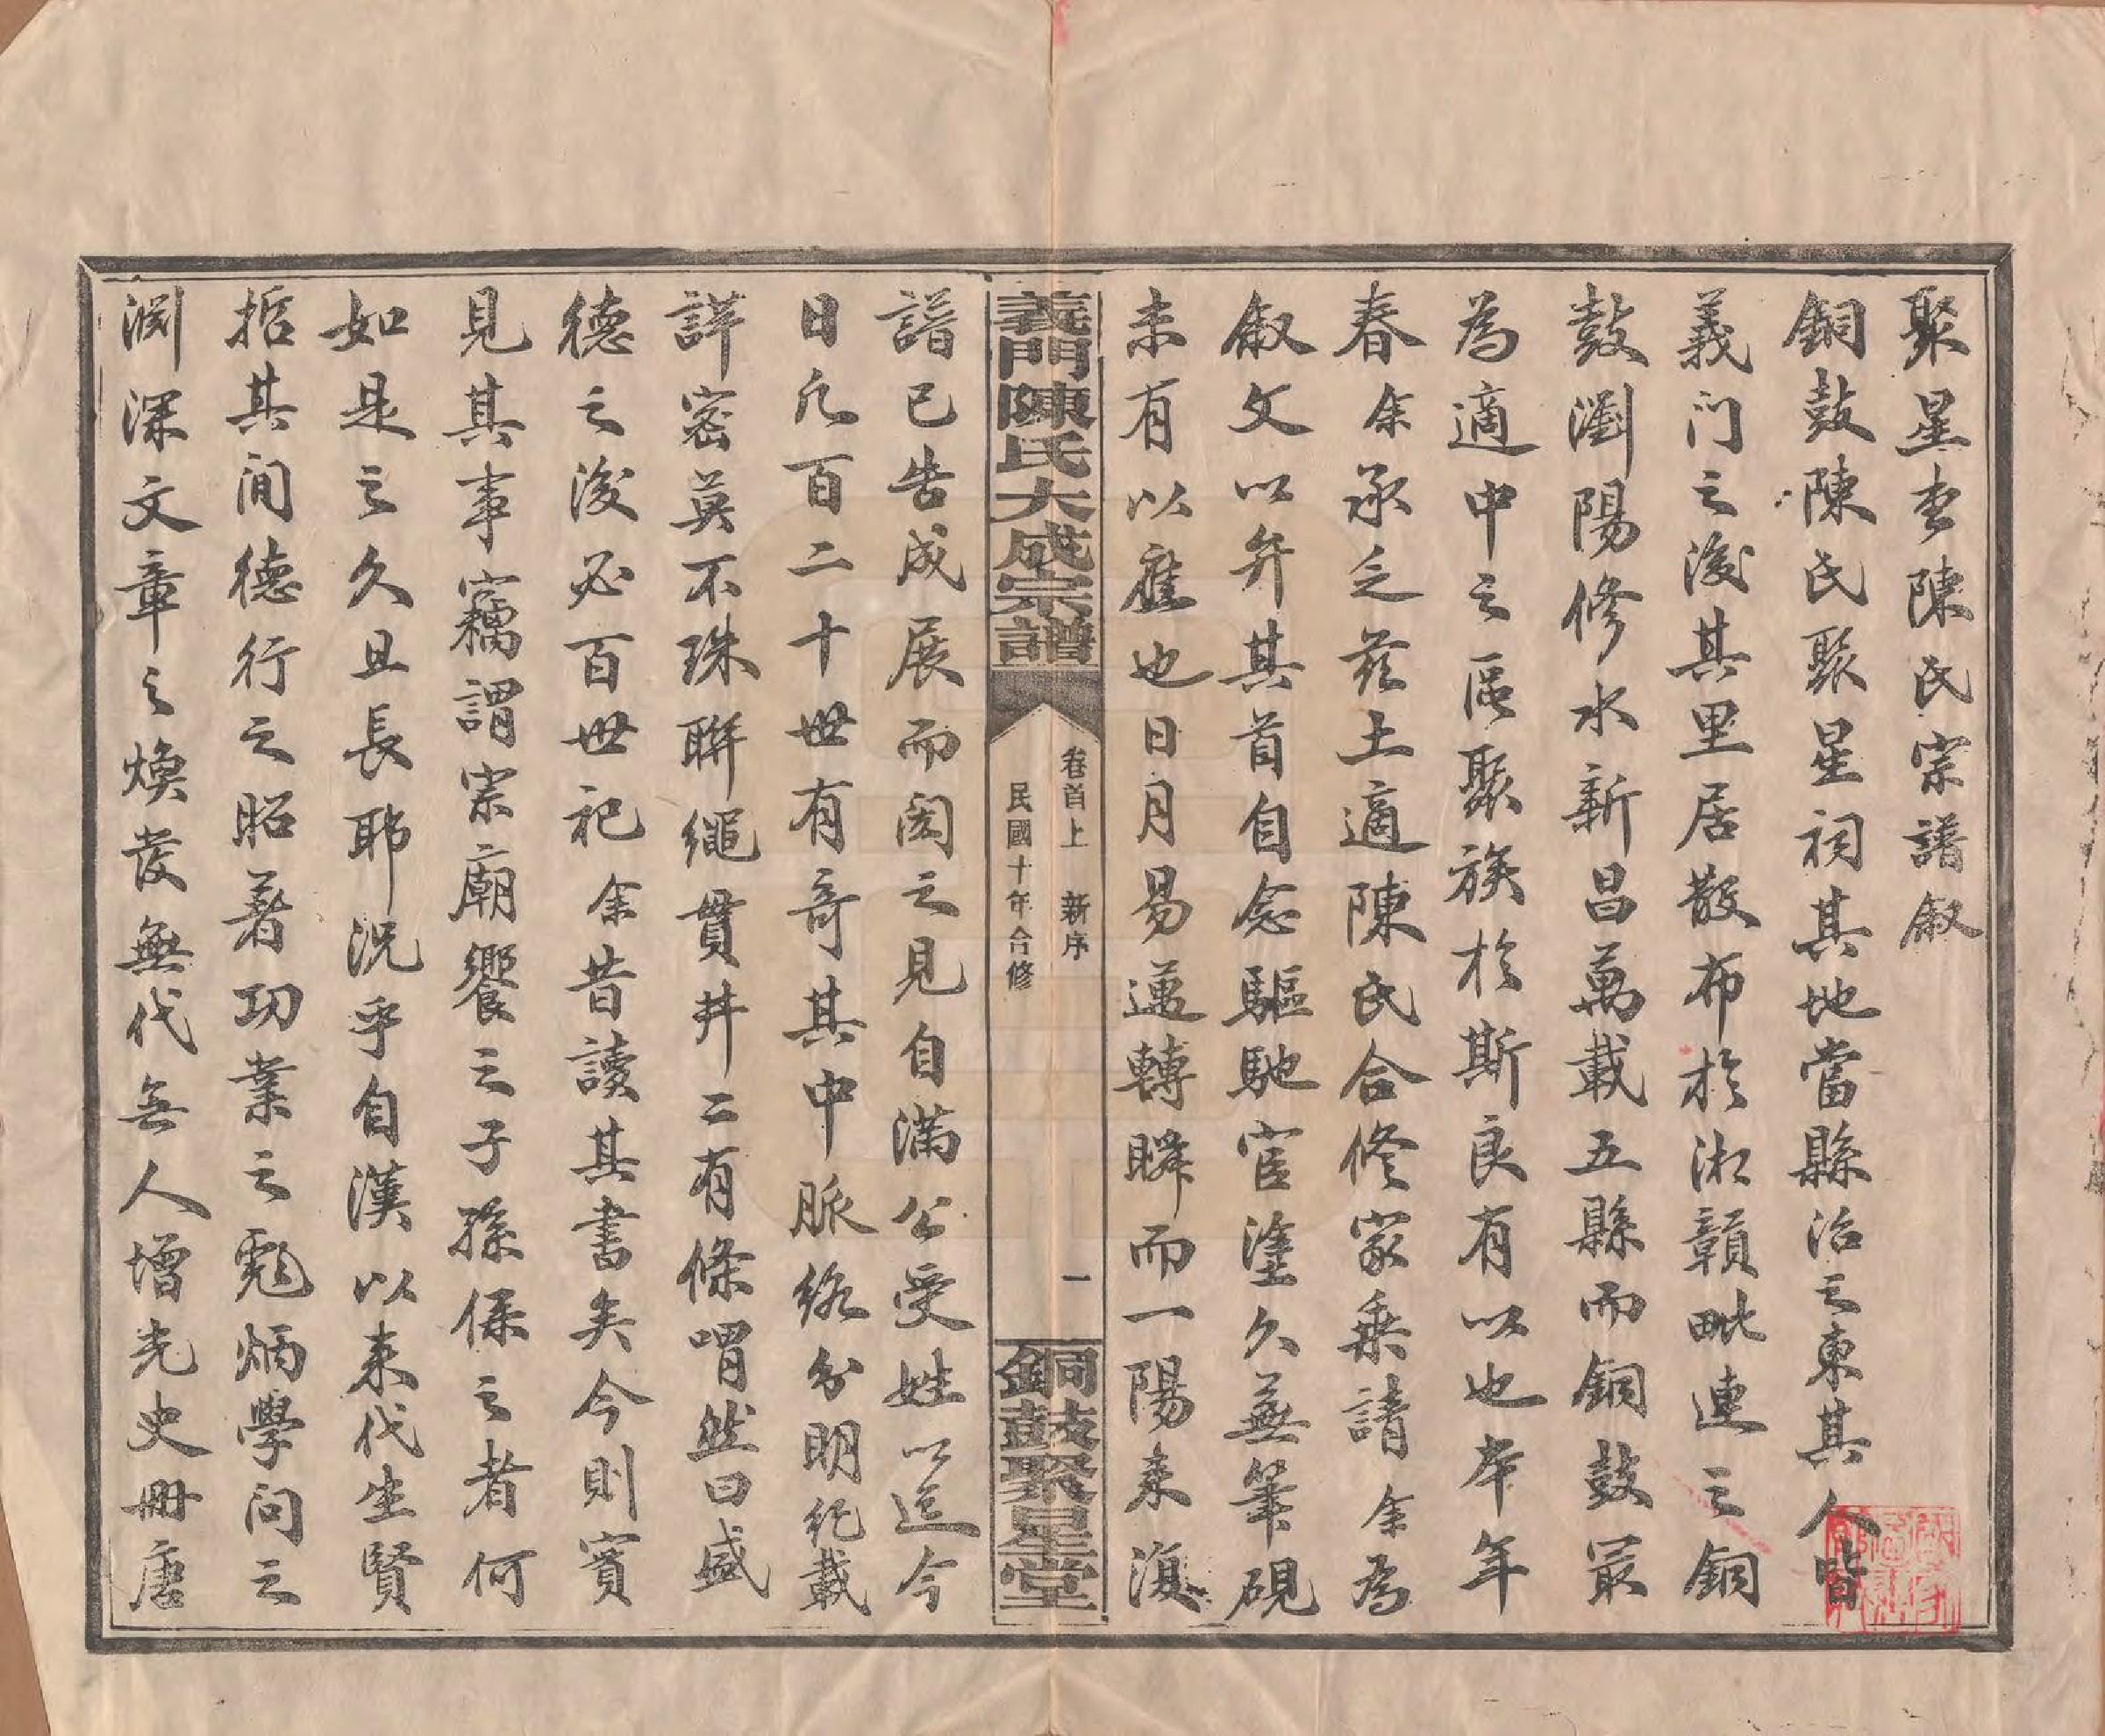 聚星堂陳氏宗譜敘
銅鼓陳氏聚星祠其地當縣治之東其人皆
義门之後其里居散布於湘贛毗連之銅
鼓瀏陽修水新昌萬載五縣而銅鼓最
為適中之區聚族於斯良有以也本年
春余承乏茲土適陳氏合修家乘請余為
敘文以弁其首自念驅馳宦塗久蕪筆硯
未有以應也日月易邁轉瞬而一陽來復
義門陳氏大成宗譜
卷首上 新序
民國十年合修
一
銅鼓聚星堂
譜已告成展而閱之見自滿公受姓以迄今
日凡百二十世有奇其中脈絡分明紀載
詳密莫不珠聯繩貫井二有條喟然曰盛
德之後必百世祀余昔讀其書矣今則實
見其事竊謂宗廟饗之子孫保之者何
如是之久且長耶況乎自漢以來代生賢
哲其间德行之昭著功業之彪炳學问之
渊深文章之煥發無代無人增光史冊唐